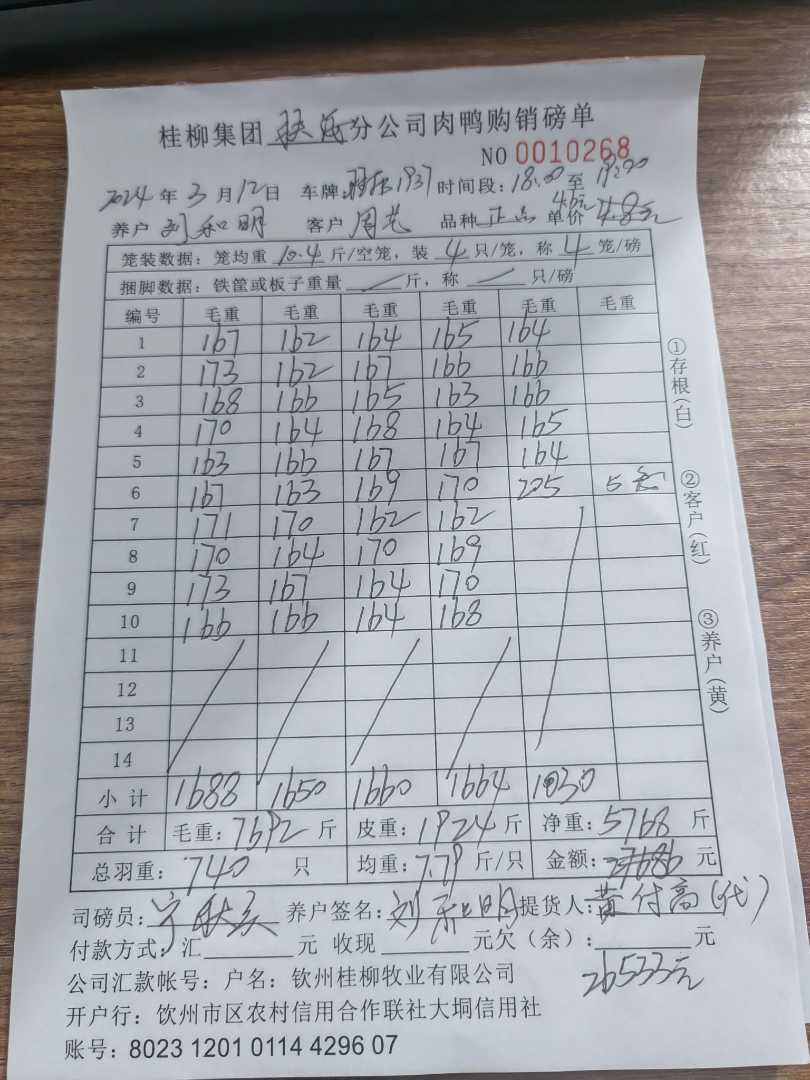 桂柳集团 分公司肉鸭购销磅单
NO 0010268
2024 年 3 月 12 日 车牌 1937 时间段: 18:00 至 19:00
养户 刘和明 客户 品种 正品 单价 4.8元 4.6元
笼装数据: 笼均重 10.4 斤/空笼, 装 4 只/笼, 称 4 笼/磅
捆脚数据: 铁筐或板子重量 / 斤, 称 / 只/磅
编号 毛重 毛重 毛重 毛重 毛重 毛重
1 167 162 164 165 164
2 173 162 167 166 166
3 168 166 165 163 166
4 170 164 168 164 165
5 163 166 167 167 164
6 167 163 169 170 205 5
7 171 170 162 162
8 170 164 170 169
9 173 167 164 170
10 166 166 164 168
11
12
13
14
小计 1688 1650 1660 1664 1030
合计 毛重: 7692 斤 皮重: 1924 斤 净重: 5768 斤
总羽重: 740 只 均重: 7.79 斤/只 金额: 27686 元
司磅员: 养户签名: 刘和明 提货人: 黄付高(代)
付款方式: 汇 元 收现 元欠(余): 元
26533元
公司汇款帐号: 户名: 钦州桂柳牧业有限公司
开户行: 钦州市区农村信用合作联社大垌信用社
账号: 8023 1201 0114 4296 07
①存根(白)
②客户(红)
③养户(黄)